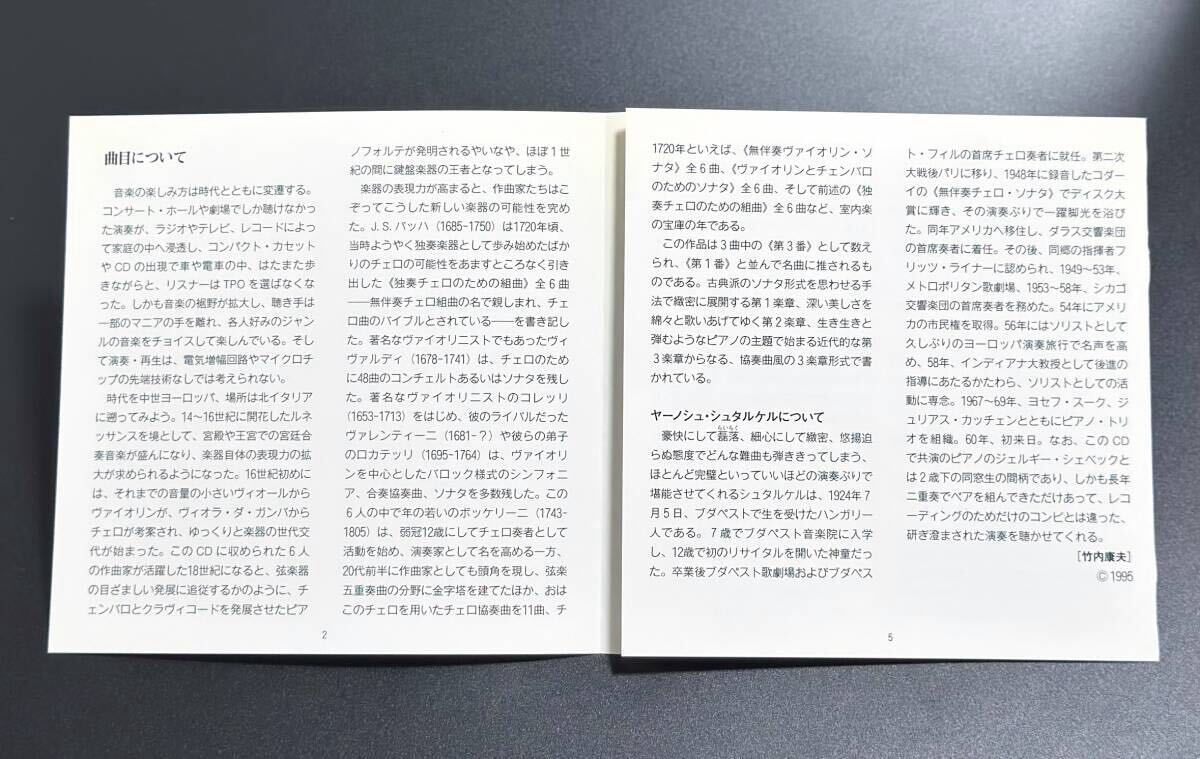 曲目について
音楽の楽しみ方は時代とともに変遷する。
コンサート・ホールや劇場でしか聴けなかっ
た演奏が、ラジオやテレビ、レコードによっ
て家庭の中へ浸透し、コンパクト・カセット
や CD の出現で車や電車の中、はたまた歩
きながらと、リスナーは TPO を選ばなくな
った。しかも音楽の裾野が拡大し、聴き手は
一部のマニアの手を離れ、各人好みのジャン
ルの音楽をチョイスして楽しんでいる。そし
て演奏・再生は、電気増幅回路やマイクロチ
ップの先端技術なしでは考えられない。
時代を中世ヨーロッパ、場所は北イタリア
に遡ってみよう。14〜16世紀に開花したルネ
ッサンスを境として、宮殿や王宮での宮廷合
奏音楽が盛んになり、楽器自体の表現力の拡
大が求められるようになった。16世紀初めに
は、それまでの音量の小さいヴィオールから
ヴァイオリンが、ヴィオラ・ダ・ガンバから
チェロが考案され、ゆっくりと楽器の世代交
代が始まった。この CD に収められた 6 人
の作曲家が活躍した18世紀になると、弦楽器
の目ざましい発展に追従するかのように、チ
ェンバロとクラヴィコードを発展させたピア
ノフォルテが発明されるやいなや、ほぼ 1 世
紀の間に鍵盤楽器の王者となってしまう。
楽器の表現力が高まると、作曲家たちはこ
ぞってこうした新しい楽器の可能性を究め
た。J. S. バッハ (1685-1750) は1720年頃、
当時ようやく独奏楽器として歩み始めたばか
りのチェロの可能性をあますところなく引き
出した《独奏チェロのための組曲》全 6 曲
――無伴奏チェロ組曲の名で親しまれ、チェ
ロ曲のバイブルとされている――を書き記し
た。著名なヴァイオリニストでもあったヴィ
ヴァルディ (1678-1741) は、チェロのため
に48曲のコンチェルトあるいはソナタを残し
た。著名なヴァイオリニストのコレッリ
(1653-1713) をはじめ、彼のライバルだった
ヴァレンティーニ (1681-?) や彼らの弟子
のロカテッリ (1695-1764) は、ヴァイオリ
ンを中心としたバロック様式のシンフォニ
ア、合奏協奏曲、ソナタを多数残した。この
6 人の中で年の若いのボッケリーニ (1743-
1805) は、弱冠12歳にしてチェロ奏者として
活動を始め、演奏家として名を高める一方、
20代前半に作曲家としても頭角を現し、弦楽
五重奏曲の分野に金字塔を建てたほか、おは
このチェロを用いたチェロ協奏曲を11曲、チ
2
1720年といえば、《無伴奏ヴァイオリン・ソ
ナタ》全 6 曲、《ヴァイオリンとチェンバロ
のためのソナタ》全 6 曲、そして前述の《独
奏チェロのための組曲》全 6 曲など、室内楽
の宝庫の年である。
この作品は 3 曲中の《第 3 番》として数え
られ、《第 1 番》と並んで名曲に推されるも
のである。古典派のソナタ形式を思わせる手
法で緻密に展開する第 1 楽章、深い美しさを
綿々と歌いあげてゆく第 2 楽章、生き生きと
弾むようなピアノの主題で始まる近代的な第
3 楽章からなる、協奏曲風の 3 楽章形式で書
かれている。
ヤーノシュ・シュタルケルについて
豪快にして磊落、細心にして緻密、悠揚迫
らぬ態度でどんな難曲も弾ききってしまう、
ほとんど完璧といっていいほどの演奏ぶりで
堪能させてくれるシュタルケルは、1924年 7
月 5 日、ブダペストで生を受けたハンガリー
人である。 7 歳でブダペスト音楽院に入学
し、12歳で初のリサイタルを開いた神童だっ
た。卒業後ブダペスト歌劇場およびブダペス
ト・フィルの首席チェロ奏者に就任。第二次
大戦後パリに移り、1948年に録音したコダー
イの《無伴奏チェロ・ソナタ》でディスク大
賞に輝き、その演奏ぶりで一躍脚光を浴び
た。同年アメリカへ移住し、ダラス交響楽団
の首席奏者に着任。その後、同郷の指揮者フ
リッツ・ライナーに認められ、1949〜53年、
メトロポリタン歌劇場、1953〜58年、シカゴ
交響楽団の首席奏者を務めた。54年にアメリ
カの市民権を取得。56年にはソリストとして
久しぶりのヨーロッパ演奏旅行で名声を高
め、58年、インディアナ大教授として後進の
指導にあたるかたわら、ソリストとしての活
動に専念。1967〜69年、ヨセフ・スーク、ジ
ュリアス・カッチェンとともにピアノ・トリ
オを組織。60年、初来日。なお、この CD
で共演のピアノのジェルギー・シェベックと
は 2 歳下の同窓生の間柄であり、しかも長年
二重奏でペアを組んできただけあって、レコ
ーディングのためだけのコンビとは違った、
研ぎ澄まされた演奏を聴かせてくれる。
[竹内康夫]
Ⓒ 1995
5